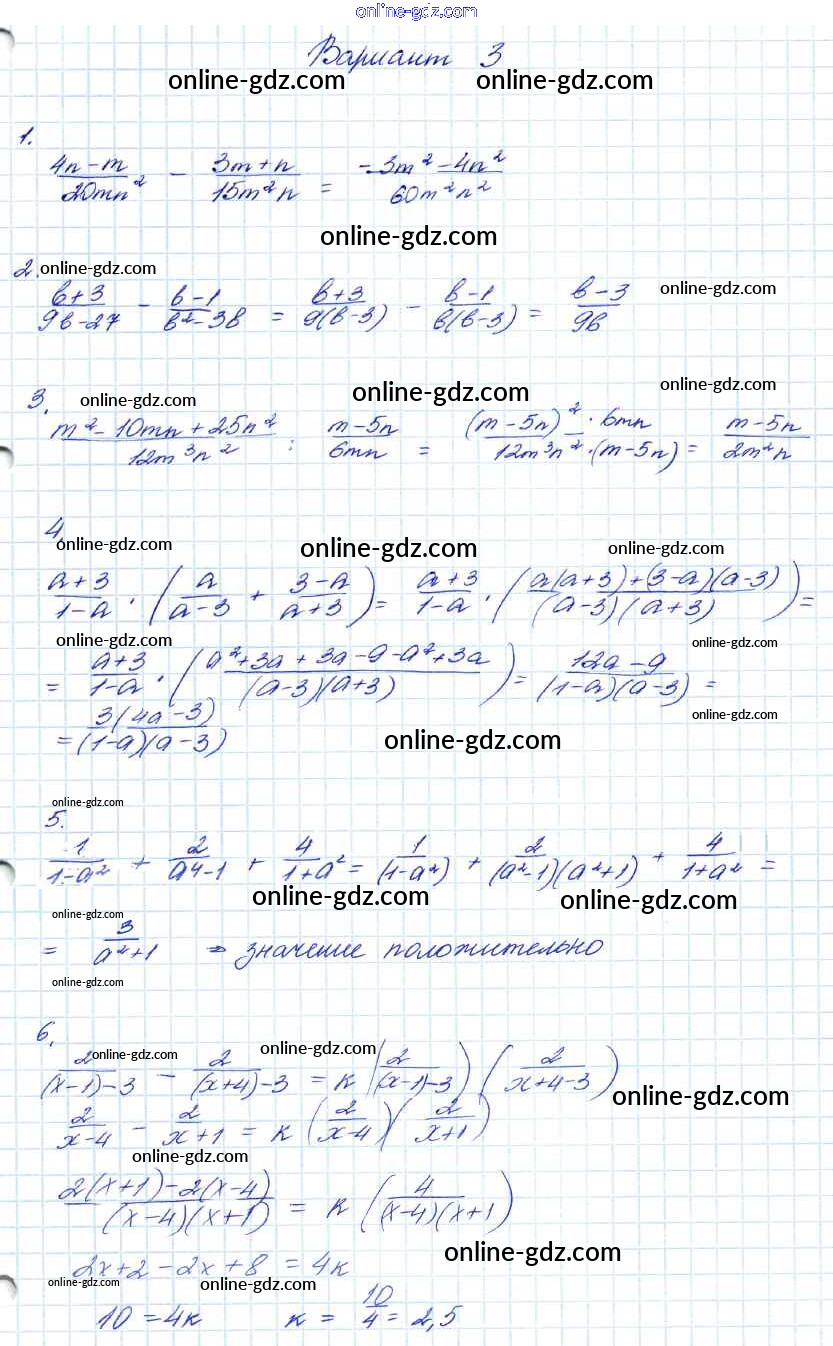 online-gdz.com
Вариант 3
online-gdz.com online-gdz.com
1.
(4n-m)/(20mn²) - (3m+n)/(15m²n) = (-3m²-4n²)/(60m²n²)
online-gdz.com
2. online-gdz.com
online-gdz.com
(b+3)/(9b-27) - (b-1)/(b²-3b) = (b+3)/(9(b-3)) - (b-1)/(b(b-3)) = (b-3)/(9b)
online-gdz.com
3. online-gdz.com online-gdz.com
(m²-10mn+25n²)/(12m³n²) : (m-5n)/(6mn) = ((m-5n)²·6mn)/(12m³n²·(m-5n)) = (m-5n)/(2m²n)
4.
online-gdz.com online-gdz.com online-gdz.com
(a+3)/(1-a) · (a/(a-3) + (3-a)/(a+3)) = (a+3)/(1-a) · ((a(a+3)+(3-a)(a-3))/((a-3)(a+3))) =
online-gdz.com online-gdz.com
= (a+3)/(1-a) · ((a²+3a+3a-9-a²+3a)/((a-3)(a+3))) = (12a-9)/((1-a)(a-3)) =
online-gdz.com
= (3(4a-3))/((1-a)(a-3))
online-gdz.com
online-gdz.com
5.
1/(1-a²) + 2/(a⁴-1) + 4/(1+a²) = 1/(1-a²) + 2/((a²-1)(a²+1)) + 4/(1+a²) =
online-gdz.com online-gdz.com
online-gdz.com
= 3/(a²+1) ⇒ значение положительно
online-gdz.com
6.
online-gdz.com online-gdz.com
2/((x-1)-3) - 2/((x+4)-3) = к (2/((x-1)-3)) (2/(x+4-3))
online-gdz.com
2/(x-4) - 2/(x+1) = к (2/(x-4)) (2/(x+1))
online-gdz.com
(2(x+1)-2(x-4))/((x-4)(x+1)) = к (4/((x-4)(x+1)))
online-gdz.com
2x+2-2x+8 = 4к
online-gdz.com online-gdz.com
10 = 4к к = 10/4 = 2,5